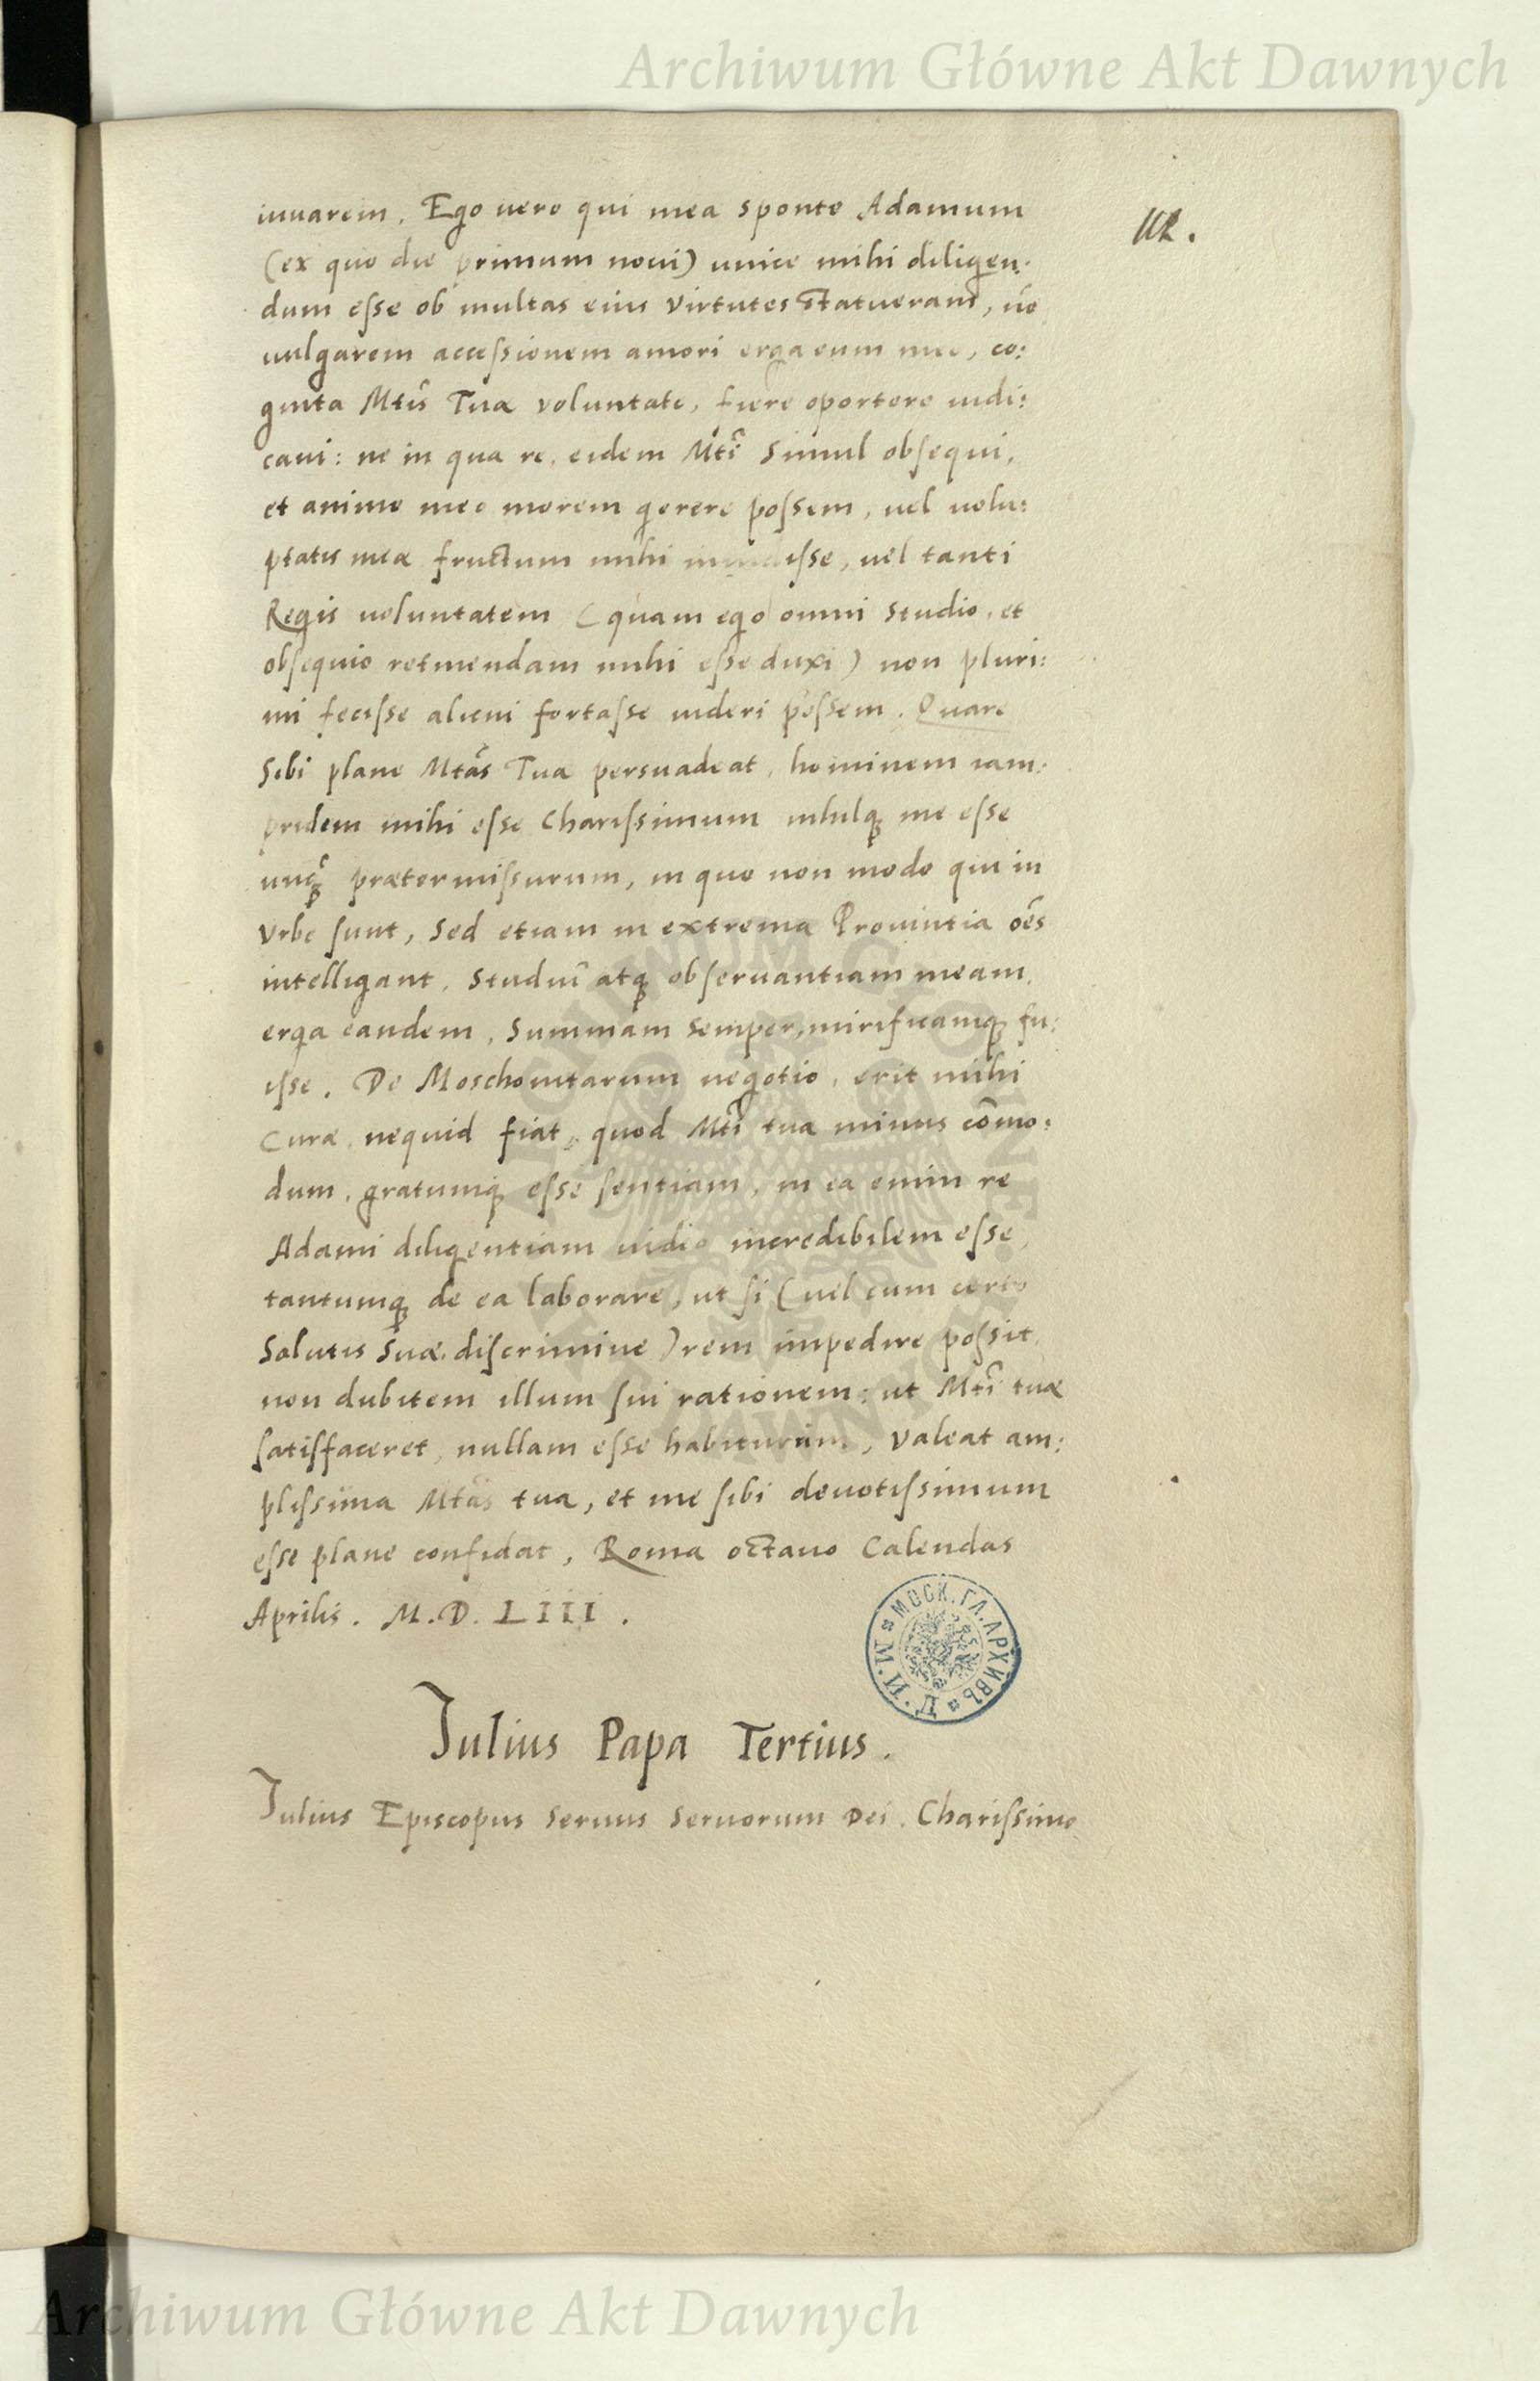 Archiwum Główne Akt Dawnych
iuuarem. Ego uero qui mea sponte Adamum
(ex quo die primum noui) unice mihi diligen:
dum esse ob multas eius virtutes statueram, nõ
uulgarem accessionem amori erga eum meo, co:
gnita Mtis Tuæ voluntate, fieri oportere iudi:
caui: ne in qua re, eidem Mti simul obsequi,
et animo meo morem gerere possem, uel uolu:
ptatis meæ fructum mihi inuidisse, uel tanti
Regis uoluntatem (quam ego omni studio, et
obsequio retinendam mihi esse duxi) non pluri:
mi fecisse alicui fortasse uideri possem. Quare
Sibi plane Mtas Tua persuadeat, hominem iam:
pridem mihi esse Charissimum nihilq me esse
unq prætermissurum, in quo non modo qui in
Vrbe sunt, Sed etiam in extrema Prouintia oẽs
intelligant, studiũ atq obseruantiam meam,
erga eandem, Summam semper, mirificamq fu:
isse. De Moschouitarum negotio, erit mihi
Curæ, nequid fiat, quod Mti tuæ minus cõmo:
dum, gratumq esse sentiam, in ea enim re
Adami diligentiam uideo incredibilem esse,
tantumq de ea laborare, ut si (uel cum certo
Salutis suæ discrimine) rem impedire possit,
non dubitem illum sui rationem: ut Mti tuæ
satisfaceret, nullam esse habiturum, Valeat am:
plissima Mtas tua, et me sibi deuotissimum
esse plane confidat, Roma octauo Calendas
Aprilis. M.D.LIII.
МОСК. ГЛ. АРХИВЪ М. И. Д.
Julius Papa Tertius.
Julius Episcopus Seruus Seruorum Dei. Charissimo
Archiwum Główne Akt Dawnych